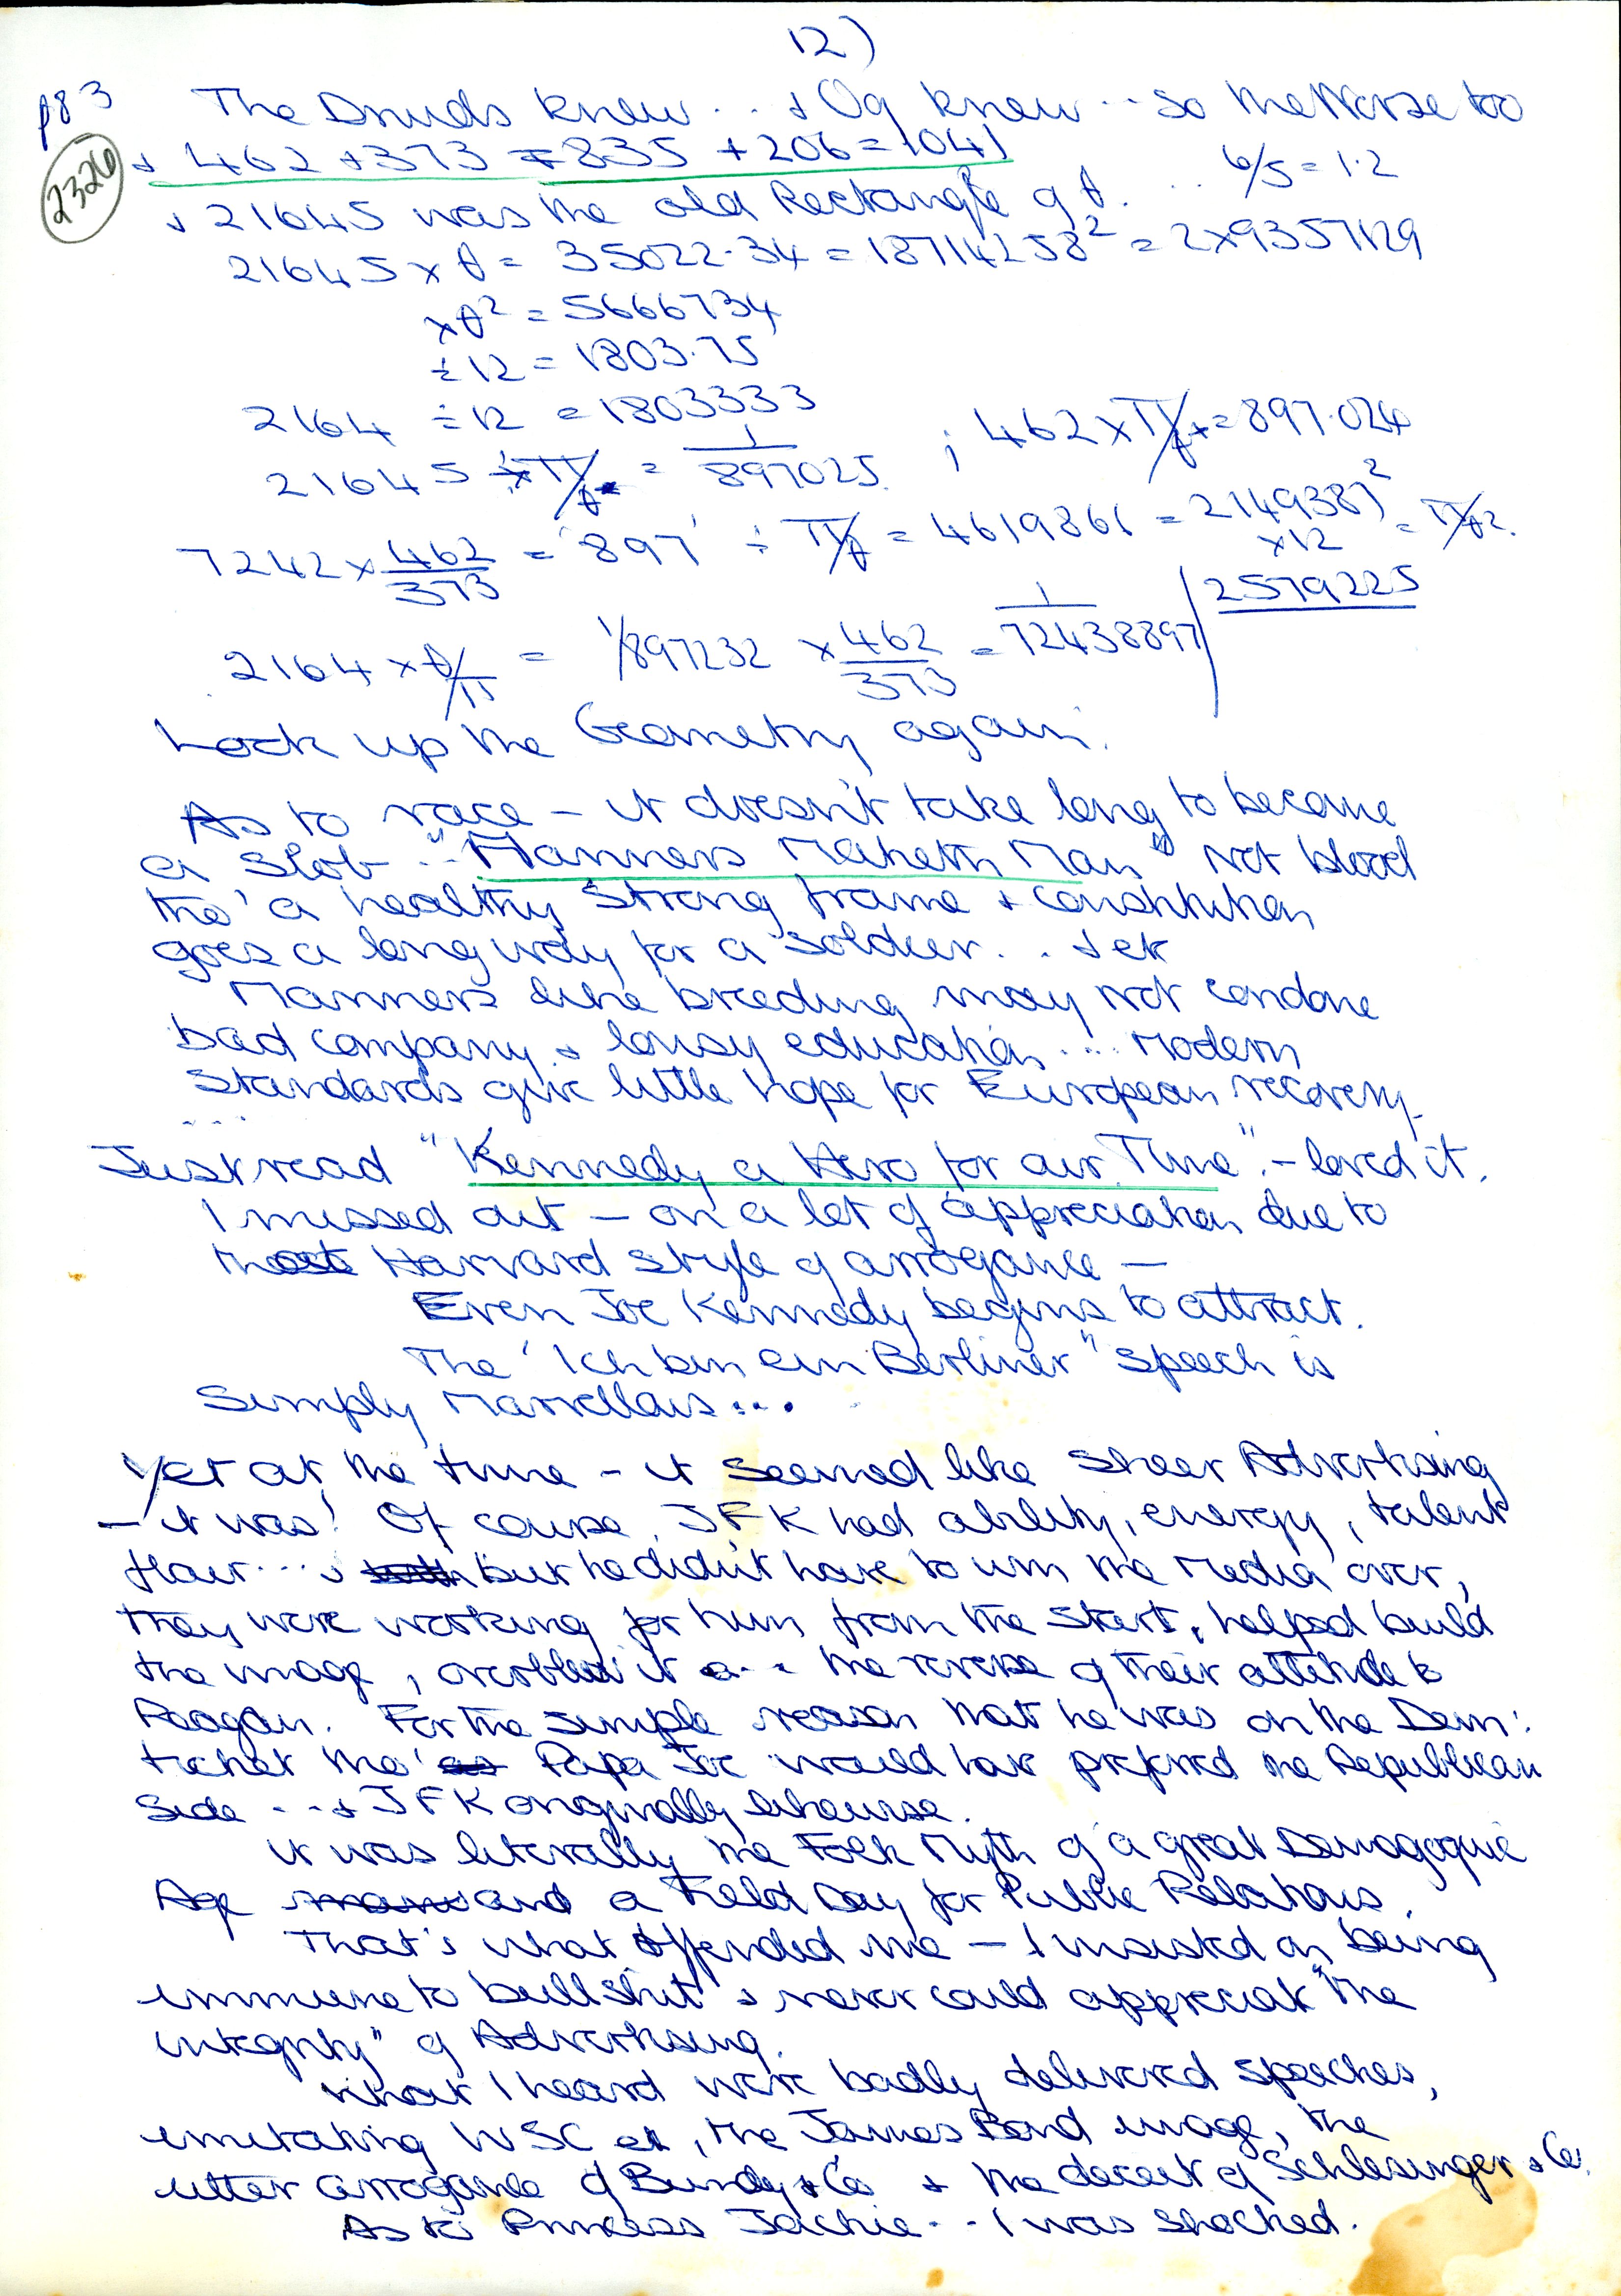 12)
p83 The Druids knew ... + Og knew ... so the Norse too
2326
+ 462 + 373 = 835 + 206 = 1041
6/5 = 1.2
+ 21645 was the old Rectangle of θ. ..
21645 x θ = 35022.34 = 18714258² = 2x9357129
xθ² = 5666734
÷12 = 1803.75
2164 ÷12 = 1803333
21645 ÷ π/θ = 1/897025 ; 462 x π/θ = 897.024
7242 x 462/373 = '897' ÷ π/θ = 4619861 = 2149387² = π/θ2.
x12
2579225
2164 x θ/π = 1/897232 x 462/373 = 1/72438897
Look up the Geometry again.
As to race - it doesn't take long to become
a slob .. "Manners Maketh Man" not blood
tho' a healthy strong frame + constitution
goes a long way for a soldier. . + etc
Manners like breeding may not condone
bad company + lousy education .... Modern
Standards give little hope for European recovery.
...
Just read "Kennedy a Hero for our Time". - loved it.
I missed out - on a lot of appreciation due to
that Harvard style of arrogance -
Even Joe Kennedy begins to attract.
The "Ich bin ein Berliner" speech is
Simply Marvellous ...
Yet at the time - it seemed like sheer Advertising
- it was! Of course, JFK had ability, energy, talent
flair ... + but he didn't have to win the Media over,
they were working for him from the start, helped build
the image, overblew it ... the reverse of their attitude to
Reagan. For the simple reason that he was on the Dem:
ticket tho' Papa Joe would have preferred the Republican
side ... + JFK originally likewise.
It was literally the Folk Myth of a great Demagogic
Age and a Field Day for Public Relations.
That's what offended me - I insisted on being
immune to bullshit + never could appreciate "the
integrity" of Advertising.
What I heard were badly delivered speeches,
imitating WSC etc, the James Bond image, the
utter arrogance of Bundy + Co + the deceit of Schlesinger + Co.
As to Princess Jackie .. I was shocked.